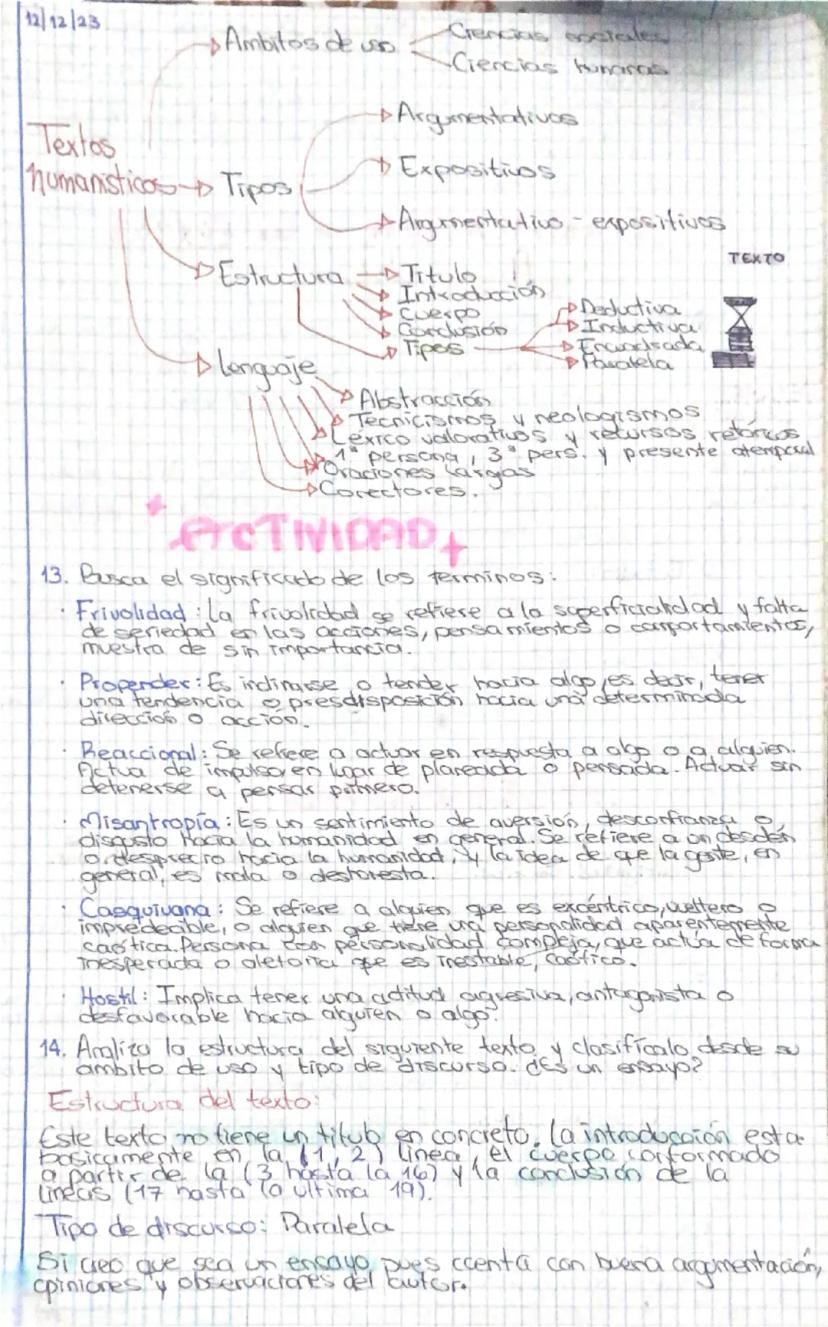 12/12/23
Ambitos de uso
Ciencias sociales
Ciencias humanas
Textos
humanisticos
Tipos
Argumentativos
Expositivos
Argumentativo - expositivos
TEXTO
Estructura
Titulo
Introducción
Cuerpo
Conclusión
Tipos
Deductiva
Inductiva
Encuadrada
Paralela
Lenguaje
Abstracción
Tecnicismos y neologismos
Léxico valorativos y recursos retóricos
1ª persona, 3ª pers. y presente atemporal
Oraciones largas
Conectores.
ACTIVIDAD
13. Busca el significado de los terminos:
· Frivolidad: La frivolidad se refiere a la superficialidad y falta
de seriedad en las acciones, pensamientos o comportamientos,
muestra de sin importancia.
· Propender: Es inclinarse o tender hacia algo, es decir, tener
una tendencia o presdisposición hacia una determinada
dirección o acción.
· Reaccional: Se refiere a actuar en respuesta a algo o a alguien.
Actua de impulso en lugar de planeada o pensada. Actuar sin
detenerse a pensar primero.
· Misantropía: Es un sentimiento de aversión, desconfianza o
disgusto hacia la humanidad en general. Se refiere a un desdén
o desprecio hacia la humanidad, y la idea de que la gente, en
general, es mala o deshonesta.
· Casquivana: Se refiere a alguien que es excéntrico, o
impredecible, o alguien que tiene una personalidad aparentemente
caótica. Persona con personalidad compleja, que actúa de forma
inesperada o que es inestable, caótico.
· Hostil: Implica tener una actitud agresiva, antagonista o
desfavorable hacia alguien o algo.
14. Analiza la estructura del siguiente texto y clasifícalo desde su
ambito de uso y tipo de discurso. ¿Es un ensayo?
Estructura del texto:
Este texto no tiene un titulo en concreto. La introducción esta
basicamente en la (1, 2) línea, el cuerpo conformado
a partir de la (3 hasta la 16) y la conclusión de la
líneas (17 hasta la ultima 19).
Tipo de discurso: Paralela
Si creo que sea un ensayo, pues ccenta con buena argumentación,
opiniones y observaciones del autor.